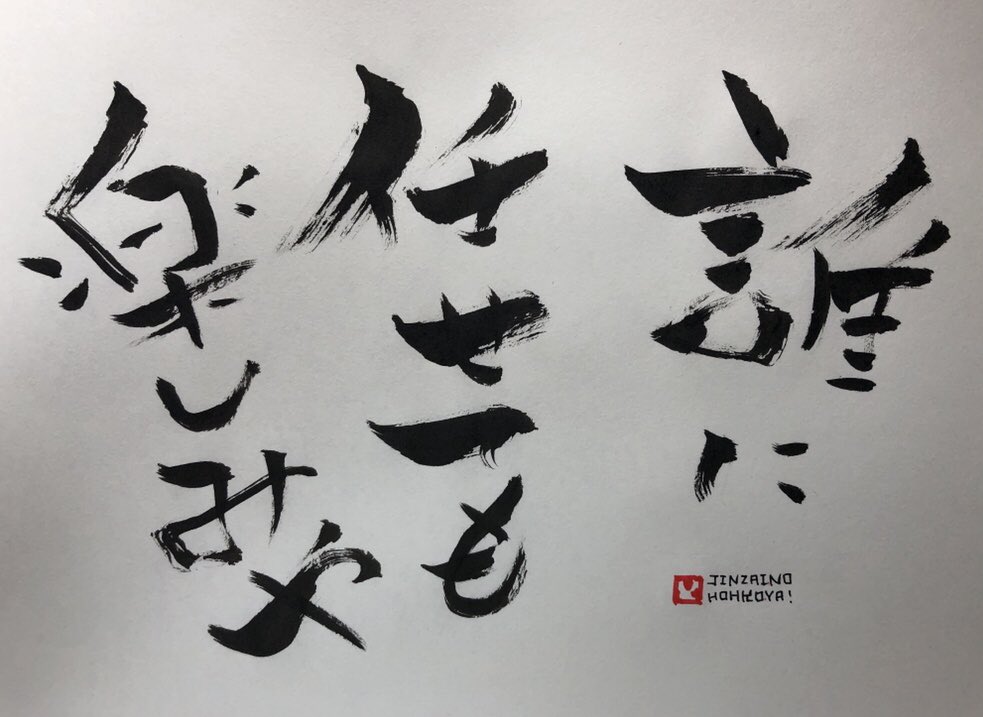 誰に
任せても
楽しみや
JINZAINO
HOHKOYA!